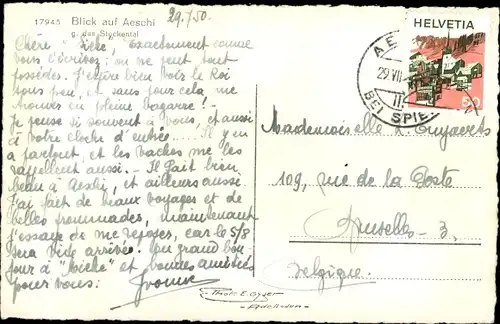 17945 Blick auf Aeschi
g. das Stockental
29.7.50.
Chère "Miche", exactement comme
vous l'écrivez: on ne peut tout
posséder. J'espère bien voir le Roi
sous peu, et sans pour cela me
trouver en pleine bagarre! -
Je pense si souvent à vous, et aussi
à votre cloche d'entrée..... Il y en
a partout, et les vaches me les
rappellent aussi. - Il fait bien
beau à Aeschi, et ailleurs aussi.
J'ai fait de beaux voyages et de
belles promenades, maintenant
j'essaye de me reposer, car le 5/8
sera vite arrivé! Un grand bon-
jour à "Miche" et bonnes amitiés
pour vous: Yvonne
HELVETIA
20
29.VII.
BEI SPIEZ
Mademoiselle
109, rue de la Poste
Bruxelles - 3.
Belgique.
Photo E. Gyger
Adelboden